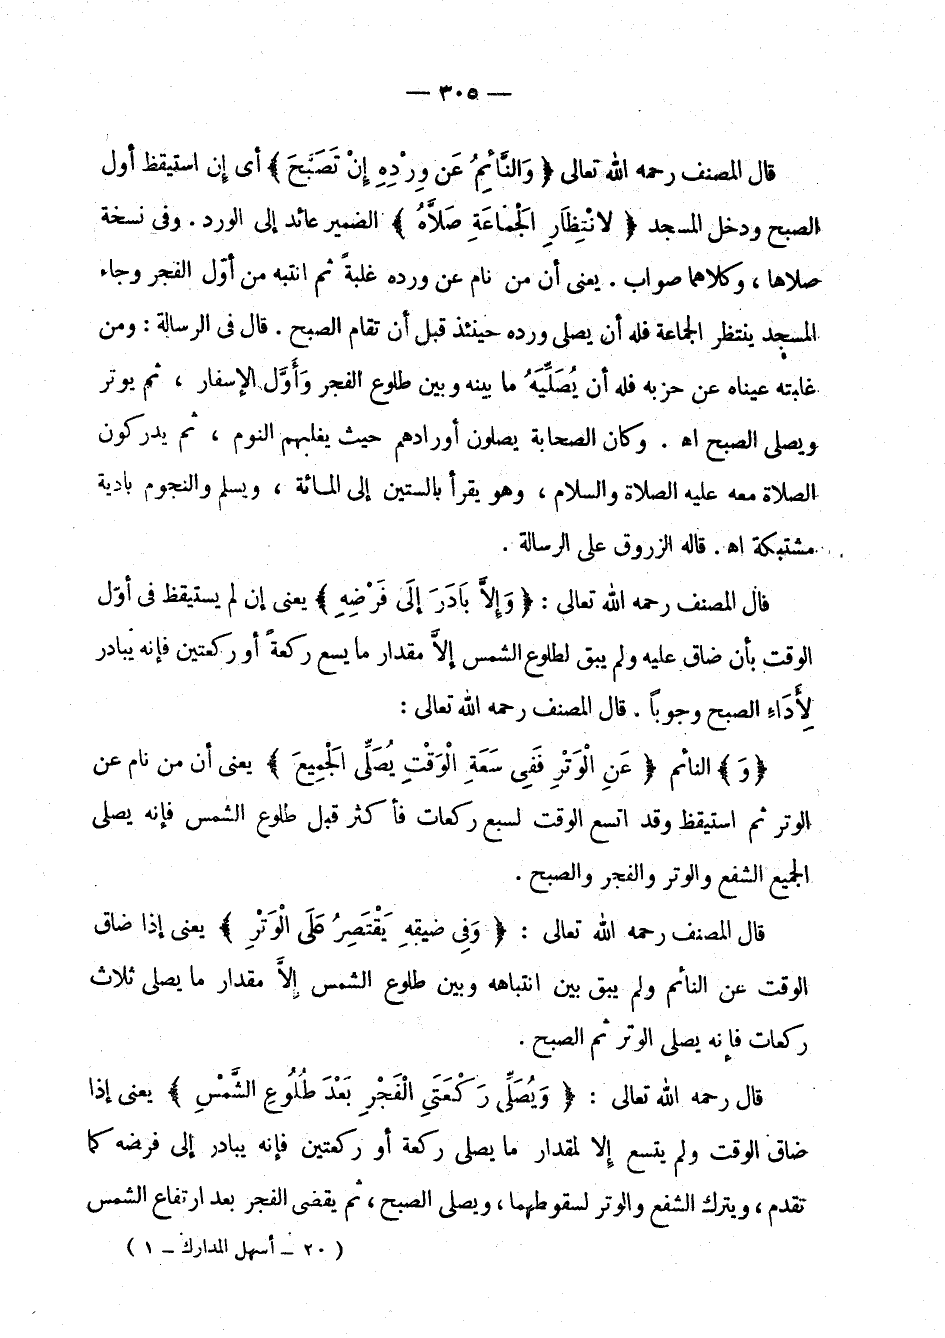 — ٣٠٥ —
قال المصنف رحمه الله تعالى ﴿ وَالنَّائِمُ عَن وِرْدِهِ إِنْ تَصَبَّحَ ﴾ أى إن استيقظ أول
الصبح ودخل المسجد ﴿ لانْتِظَارِ الْجَمَاعَةِ صَلاَّهُ ﴾ الضمير عائد إلى الورد . وفى نسخة
صلاها ، وكلاهما صواب . يعنى أن من نام عن ورده غلبةً ثم انتبه من أوّل الفجر وجاء
المسجد ينتظر الجماعة فله أن يصلى ورده حينئذ قبل أن تقام الصبح . قال فى الرسالة : ومن
غلبته عيناه عن حزبه فله أن يُصَلِّيَهُ ما بينه وبين طلوع الفجر وَأَوَّل الإسفار ، ثم يوتر
ويصلى الصبح اه . وكان الصحابة يصلون أورادهم حيث يغلبهم النوم ، ثم يدركون
الصلاة معه عليه الصلاة والسلام ، وهو يقرأ بالستين إلى المائة ، ويسلم والنجوم بادية
مشتبكة اه . قاله الزروق على الرسالة .
قال المصنف رحمه الله تعالى : ﴿ وَإِلاَّ بَادَرَ إِلَى فَرْضِهِ ﴾ يعنى إن لم يستيقظ فى أوّل
الوقت بأن ضاق عليه ولم يبق لطلوع الشمس إلاَّ مقدار ما يسع ركعةً أو ركعتين فإنه يبادر
لِأَدَاءِ الصبح وجوباً . قال المصنف رحمه الله تعالى :
﴿ وَ ﴾ النائم ﴿ عَنِ الْوَتْرِ فَفِى سَعَةِ الْوَقْتِ يُصَلِّى الْجَمِيعَ ﴾ يعنى أن من نام عن
الوتر ثم استيقظ وقد اتسع الوقت لسبع ركعات فأكثر قبل طلوع الشمس فإنه يصلى
الجميع الشفع والوتر والفجر والصبح .
قال المصنف رحمه الله تعالى : ﴿ وَفِى ضيقِهِ يَقْتَصِرُ عَلَى الْوَتْرِ ﴾ يعنى إذا ضاق
الوقت عن النائم ولم يبق بين انتباهه وبين طلوع الشمس إلاَّ مقدار ما يصلى ثلاث
ركعات فإنه يصلى الوتر ثم الصبح .
قال رحمه الله تعالى : ﴿ وَيُصَلِّى رَكْعَتَىِ الْفَجْرِ بَعْدَ طُلُوعِ الشَّمْسِ ﴾ يعنى إذا
ضاق الوقت ولم يتسع إلا لمقدار ما يصلى ركعة أو ركعتين فإنه يبادر إلى فرضه كما
تقدم ، ويترك الشفع والوتر لسقوطهما ، ويصلى الصبح ، ثم يقضى الفجر بعد ارتفاع الشمس
( ٢٠ – أسهل المدارك – ١ )